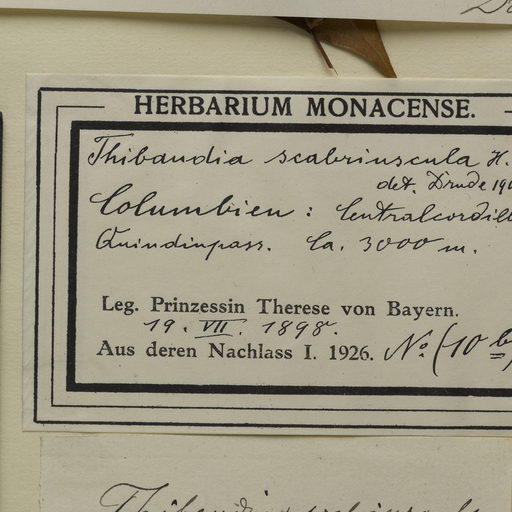 HERBARIUM MONACENSE.
Thibaudia scabriuscula H.
det. Drude
Columbien: Centralcordill
Quindiupass. Ca. 3000 m.
Leg. Prinzessin Therese von Bayern.
19. VII. 1898.
Aus deren Nachlass I. 1926. No. (10 b)
Thibaudia